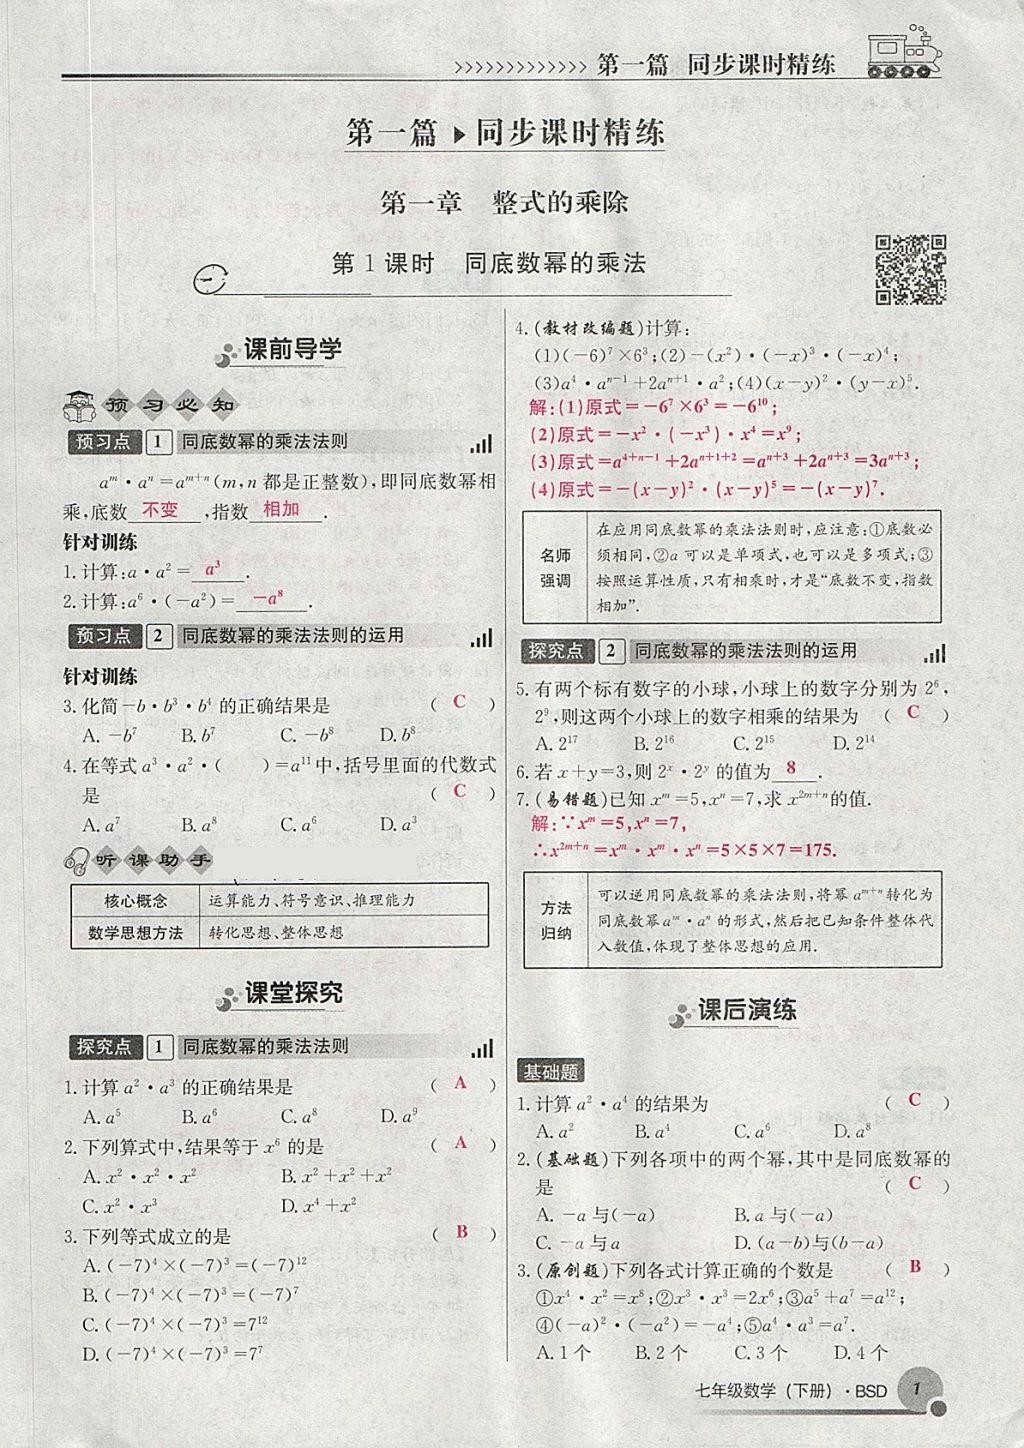 第一篇 同步课时精练
第一篇 同步课时精练
第一章 整式的乘除
第1课时 同底数幂的乘法
课前导学
预习必知
预习点 1 同底数幂的乘法法则
aᵐ·aⁿ=aᵐ⁺ⁿ(m,n都是正整数),即同底数幂相
乘,底数 不变 ,指数 相加 .
针对训练
1.计算:a·a²= a³ .
2.计算:a⁶·(-a²)= -a⁸ .
预习点 2 同底数幂的乘法法则的运用
针对训练
3.化简-b·b³·b⁴的正确结果是 ( C )
A.-b⁷ B.b⁷ C.-b⁸ D.b⁸
4.在等式a³·a²·( )=a¹¹中,括号里面的代数式
是 ( C )
A.a⁷ B.a⁸ C.a⁶ D.a³
听课助手
核心概念 运算能力、符号意识、推理能力
数学思想方法 转化思想、整体思想
课堂探究
探究点 1 同底数幂的乘法法则
1.计算a²·a³的正确结果是 ( A )
A.a⁵ B.a⁶ C.a⁸ D.a⁹
2.下列算式中,结果等于x⁶的是 ( A )
A.x²·x²·x² B.x²+x²+x²
C.x²·x³ D.x⁴+x²
3.下列等式成立的是 ( B )
A.(-7)⁴×(-7)³=(-7)¹²
B.(-7)⁴×(-7)³=(-7)⁷
C.(-7)⁴×(-7)³=7¹²
D.(-7)⁴×(-7)³=7⁷
4.(教材改编题)计算:
(1)(-6)⁷×6³;(2)-(x²)·(-x)³·(-x)⁴;
(3)a⁴·aⁿ⁻¹+2aⁿ⁺¹·a²;(4)(x-y)²·(y-x)⁵.
解:(1)原式=-6⁷×6³=-6¹⁰;
(2)原式=-x²·(-x³)·x⁴=x⁹;
(3)原式=a⁴⁺ⁿ⁻¹+2aⁿ⁺¹⁺²=aⁿ⁺³+2aⁿ⁺³=3aⁿ⁺³;
(4)原式=-(x-y)²·(x-y)⁵=-(x-y)⁷.
名师强调 在应用同底数幂的乘法法则时,应注意:①底数必
须相同,②a可以是单项式,也可以是多项式;③
按照运算性质,只有相乘时,才是“底数不变,指数
相加”.
探究点 2 同底数幂的乘法法则的运用
5.有两个标有数字的小球,小球上的数字分别为2⁶,
2⁹,则这两个小球上的数字相乘的结果为 ( C )
A.2¹⁷ B.2¹⁶ C.2¹⁵ D.2¹⁴
6.若x+y=3,则2ˣ·2ʸ的值为 8 .
7.(易错题)已知xᵐ=5,xⁿ=7,求x²ᵐ⁺ⁿ的值.
解:∵xᵐ=5,xⁿ=7,
∴x²ᵐ⁺ⁿ=xᵐ·xᵐ·xⁿ=5×5×7=175.
方法归纳 可以逆用同底数幂的乘法法则,将幂aᵐ⁺ⁿ转化为
同底数幂aᵐ·aⁿ的形式,然后把已知条件整体代
入数值,体现了整体思想的应用.
课后演练
基础题
1.计算a²·a⁴的结果为 ( C )
A.a² B.a⁴ C.a⁶ D.a⁸
2.(基础题)下列各项中的两个幂,其中是同底数幂的
是 ( C )
A.-a与(-a) B.a与(-a)
C.-a与a D.(a-b)与(b-a)
3.(原创题)下列各式计算正确的个数是 ( B )
①x⁴·x²=x⁸;②x³·x³=2x⁶;③a⁵+a⁷=a¹²;
④(-a)²·(-a²)=-a⁴;⑤a⁴·a³=a⁷.
A.1个 B.2个 C.3个 D.4个
七年级数学(下册)·BSD 1